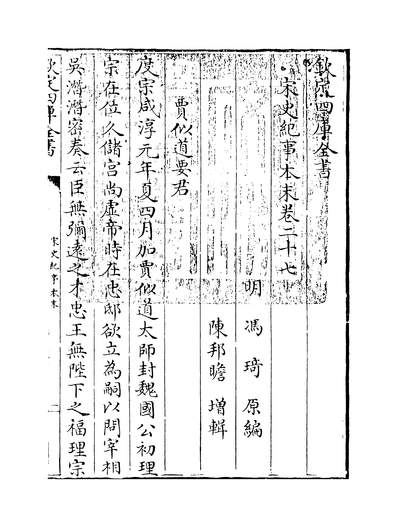 欽定四庫全書
宋史紀事本末卷二十七
明 馮琦 原編
陳邦瞻 增輯
賈似道要君
度宗咸淳元年夏四月加賈似道太師封魏國公初理
宗在位久儲宮尚虛帝時在忠邸欲立為嗣以問宰相
吳潛潛密奏云臣無彌遠之才忠王無陛下之福理宗
欽定四庫全書
宋史紀事本末
一